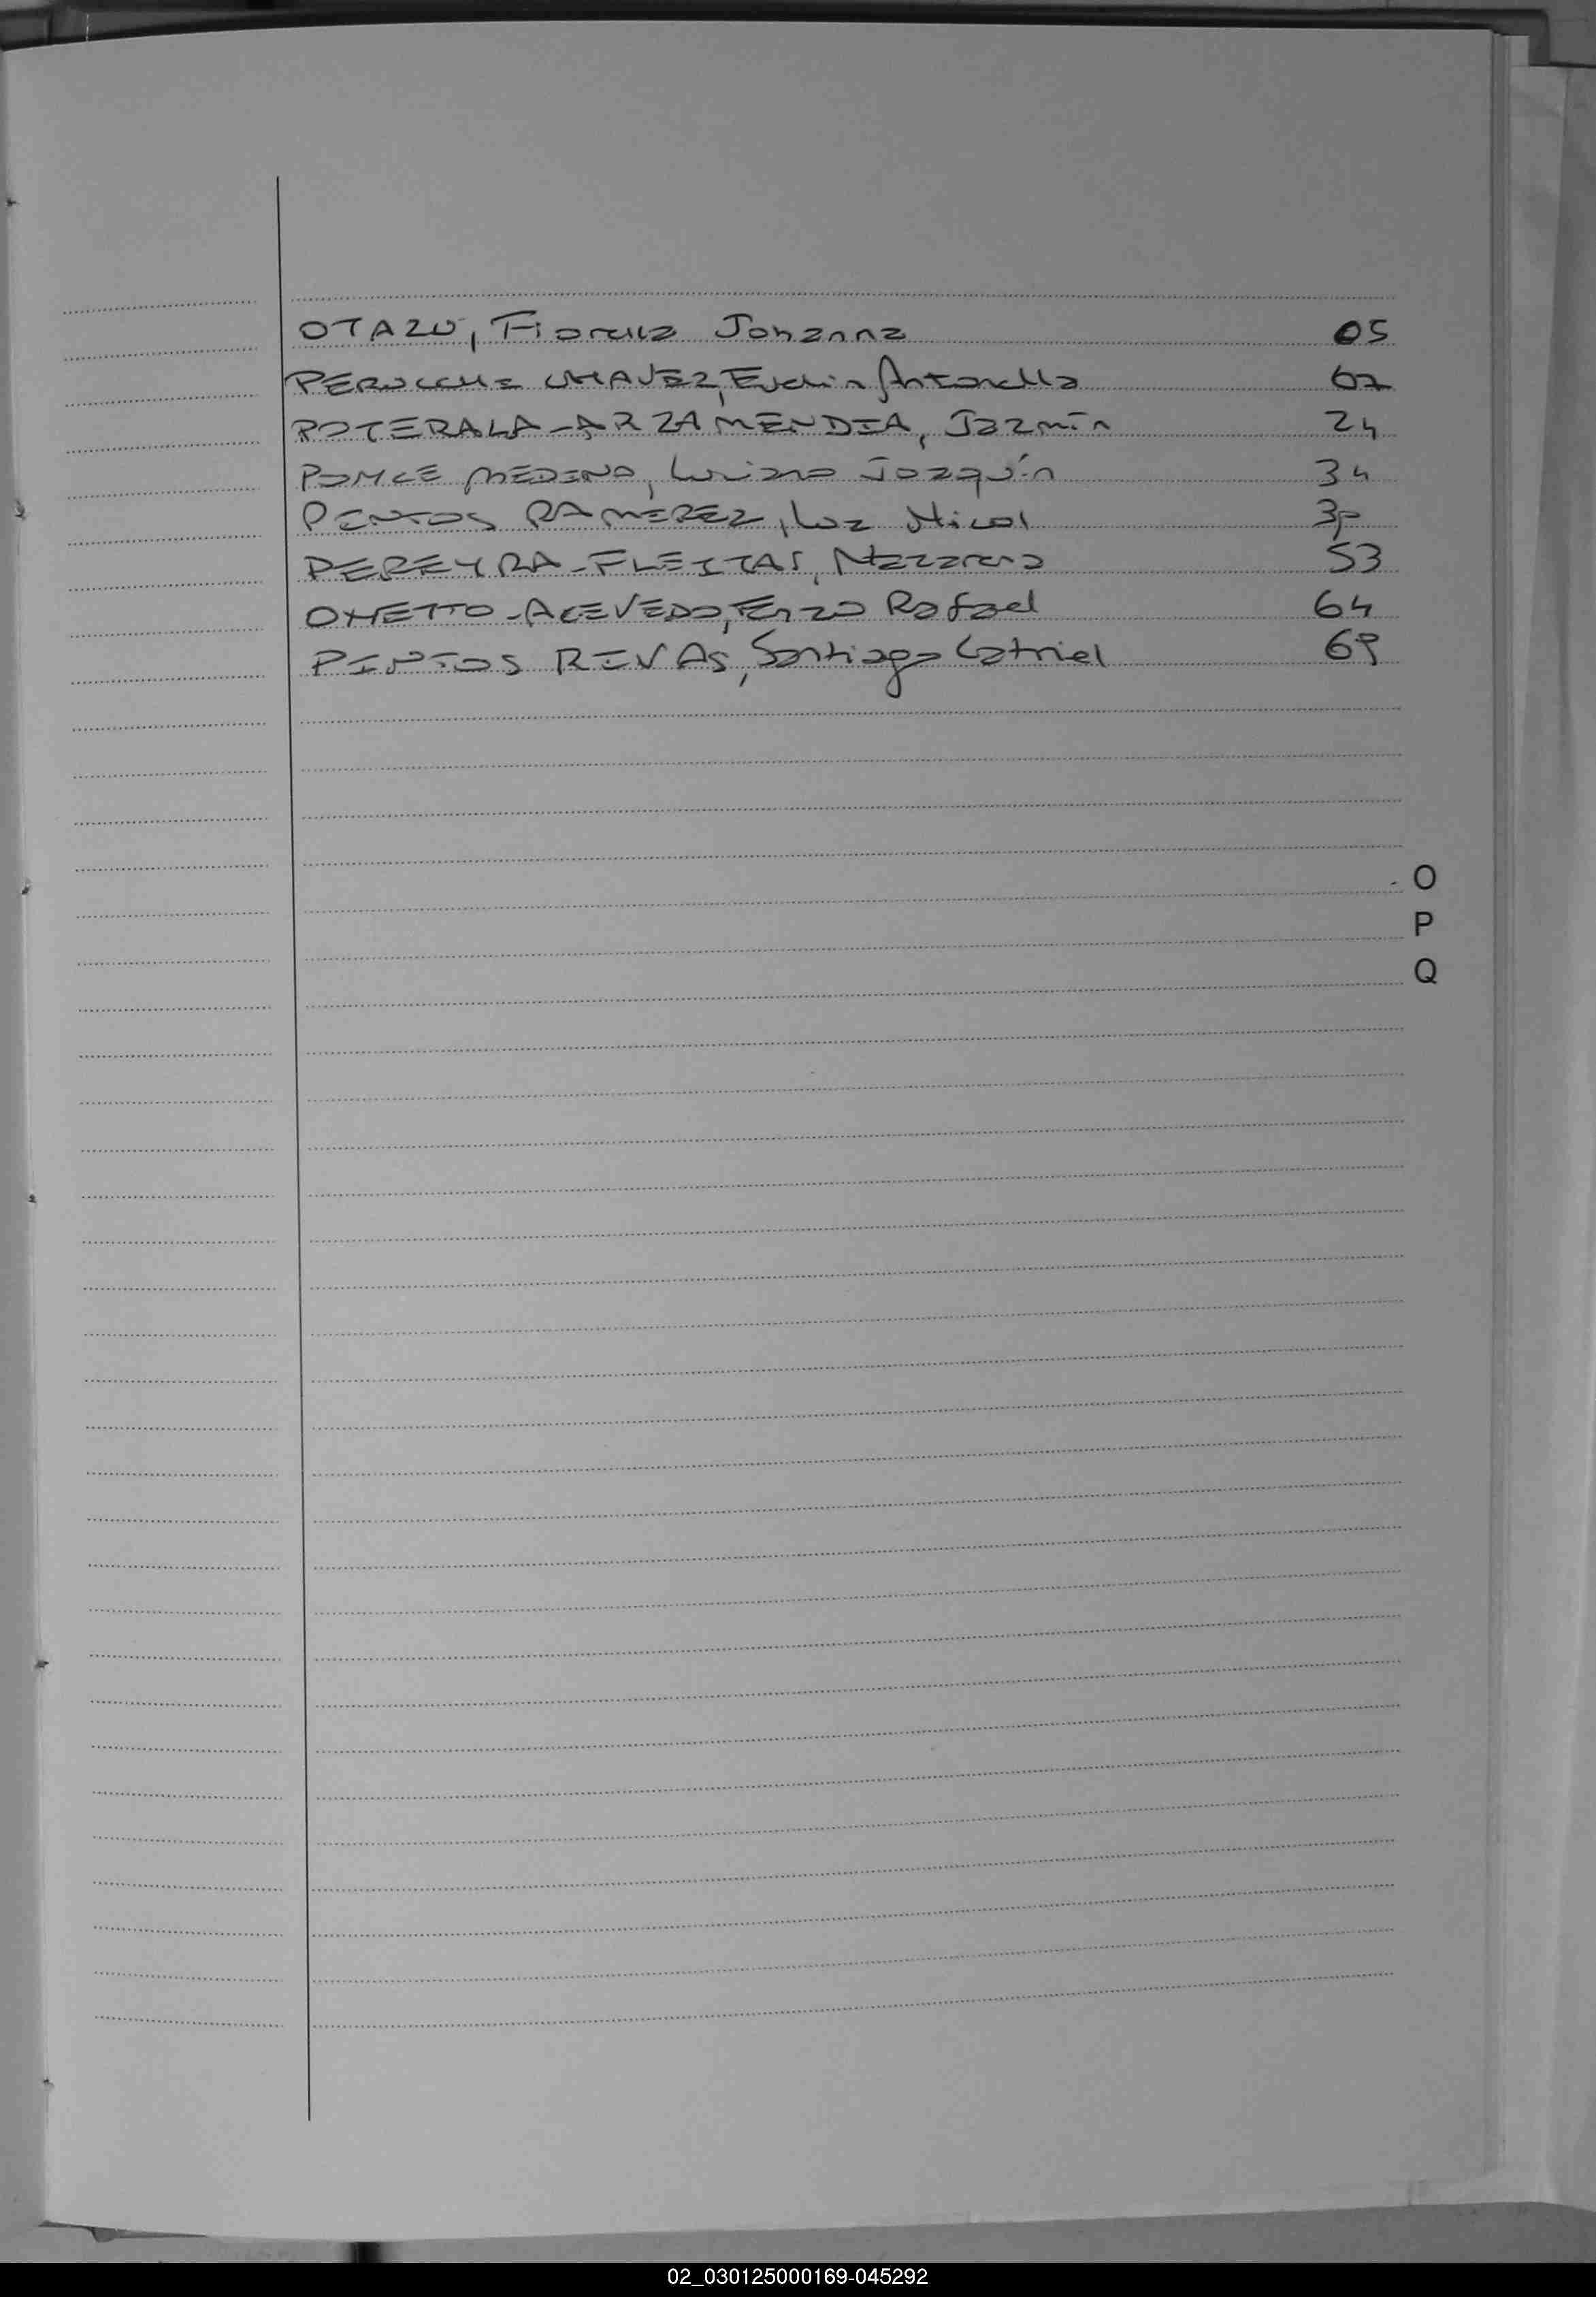 OTAZU, Fiorella Johanna 05
PEROCCHI CHAVEZ, Evelin Antonella 07
POTERALA-ARZAMENDIA, Jazmín 24
PONCE MEDINA, Luciano Joaquín 34
PINTOS RAMIREZ, Luz Nicol 39
PEREYRA-FLEITAS, Nazarena 53
OMETTO-ACEVEDO, Enzo Rafael 64
PINTOS RIVAS, Santiago Catriel 69
O
P
Q
02_030125000169-045292